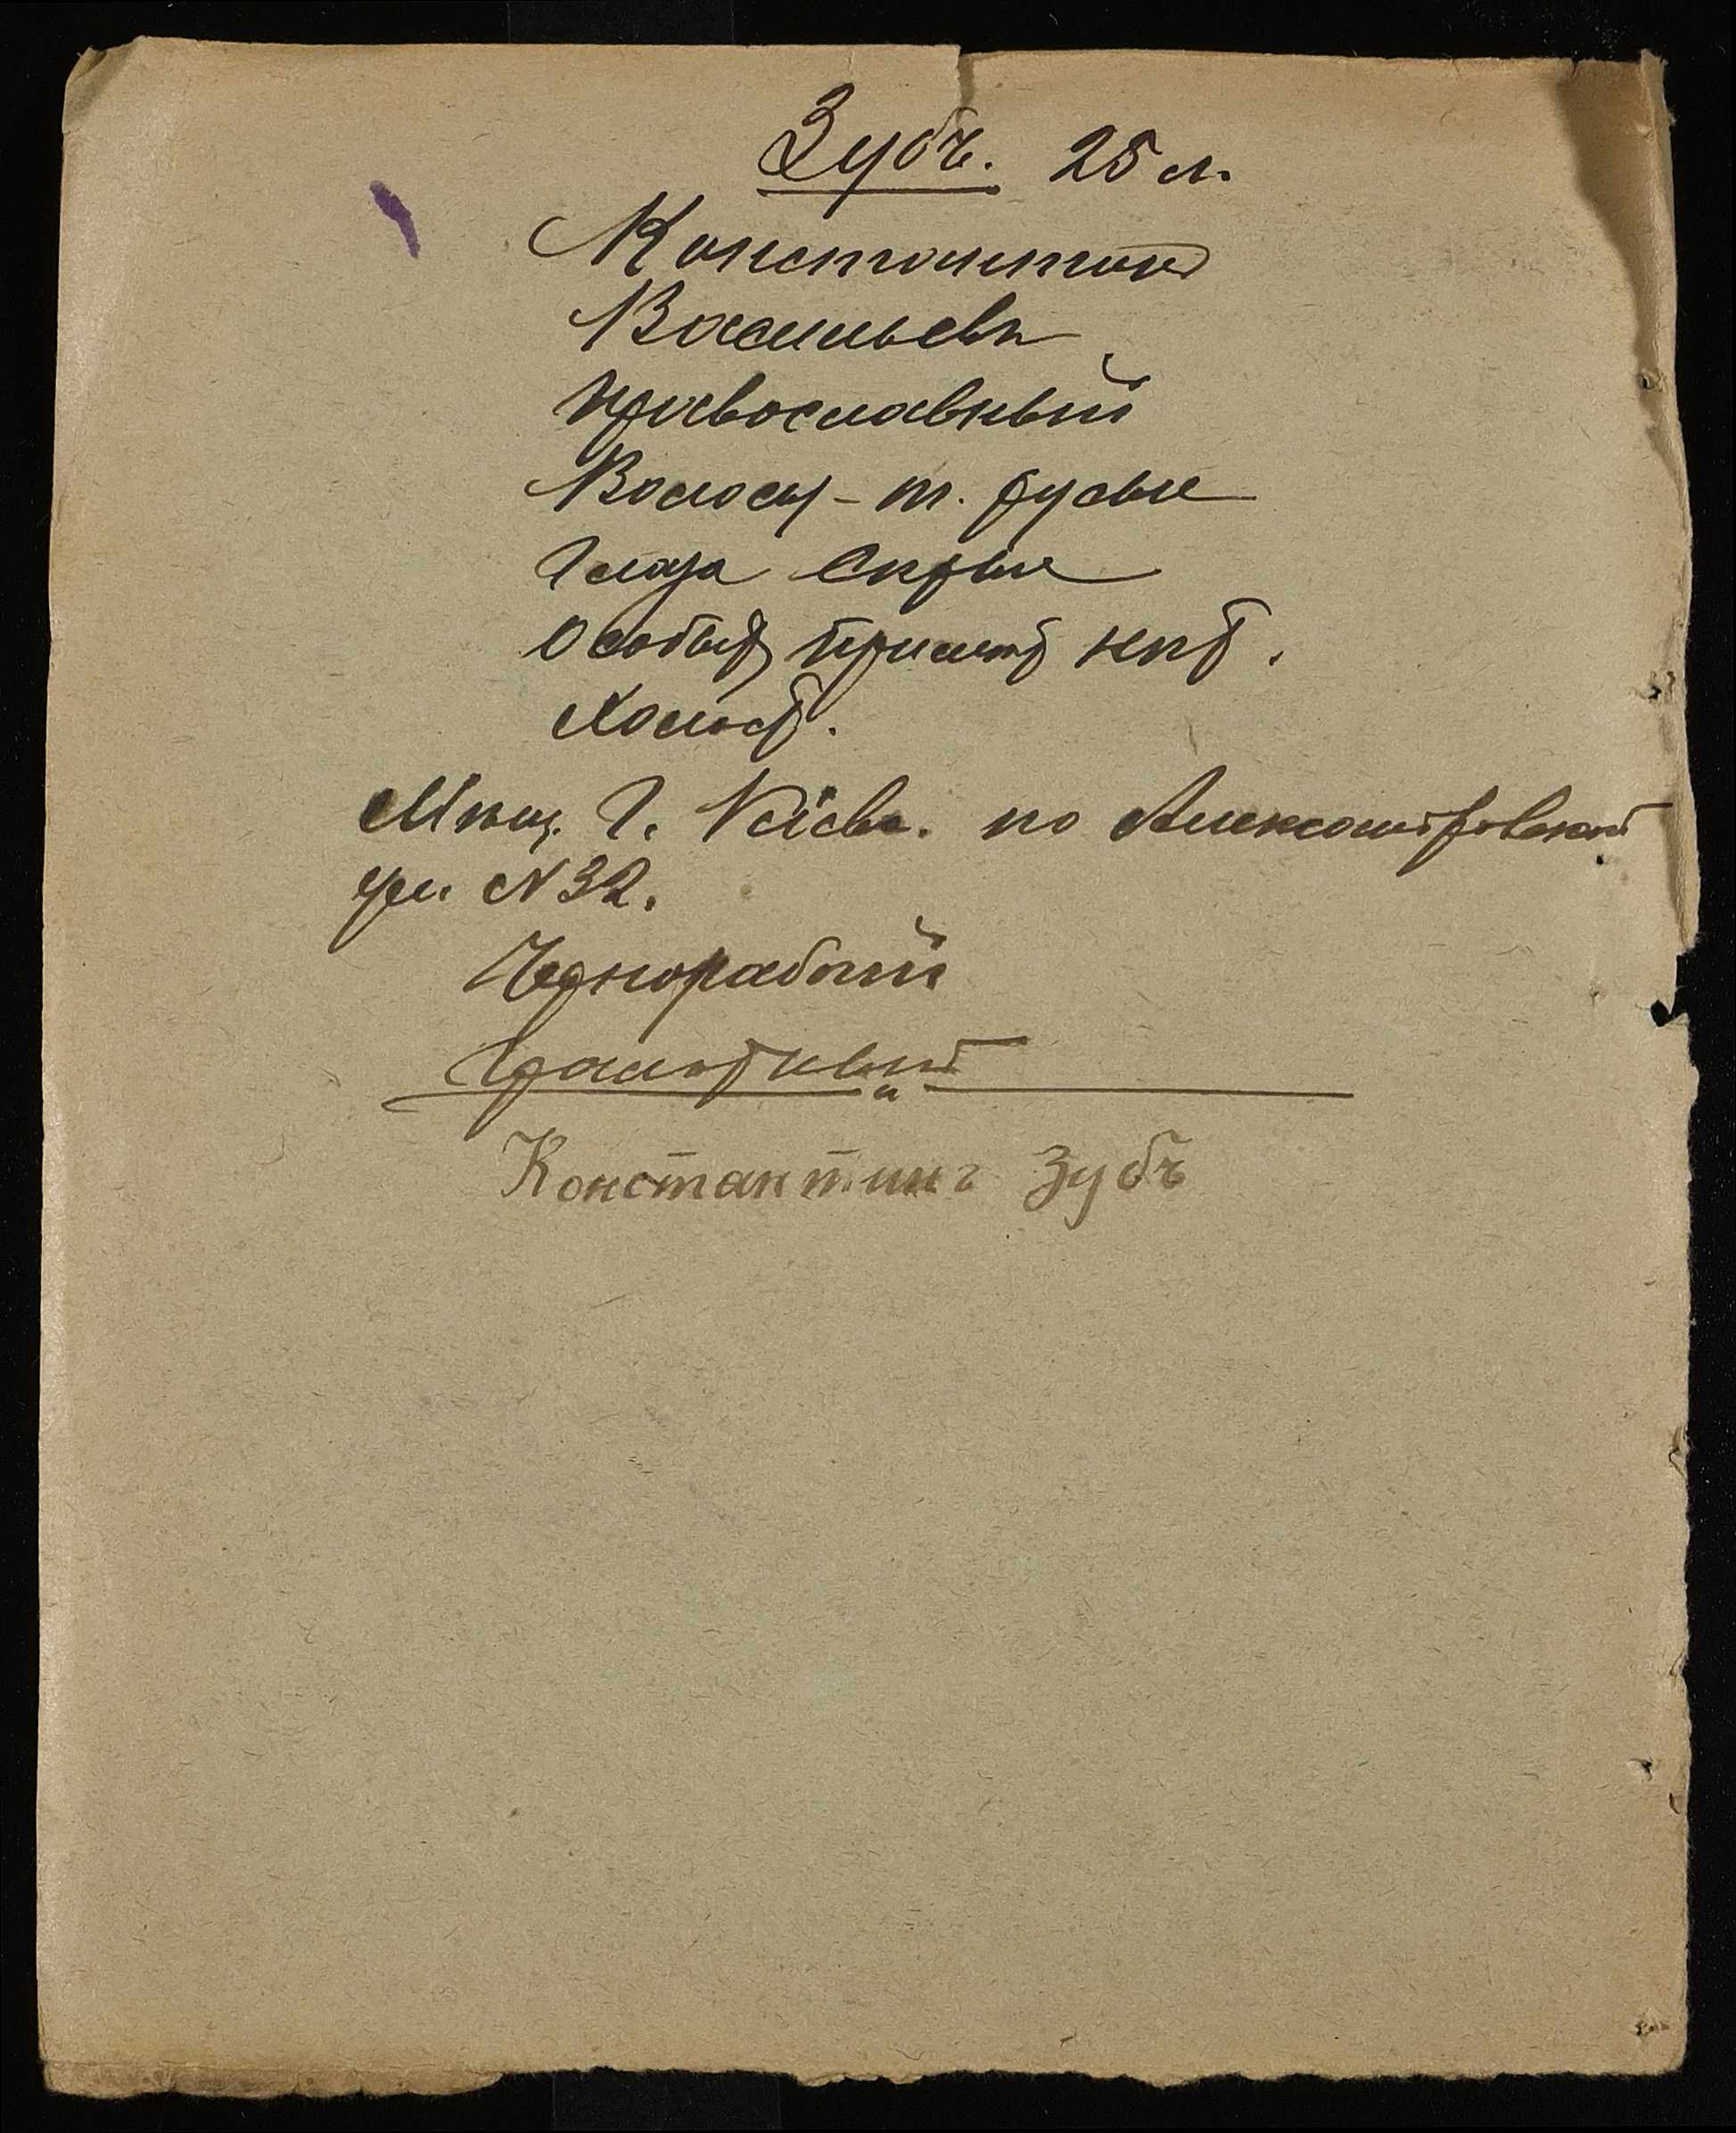 Зубъ. 25 л.
Константинъ
Васильевъ
православный
Волосы - т. русые
Глаза Серые
Особыхъ примѣтъ нѣтъ.
Холостъ.
Мѣщ. г. Кіева. по Александровской
ул. N 32.
Чернорабочій
Грамотный
Константинъ Зубъ